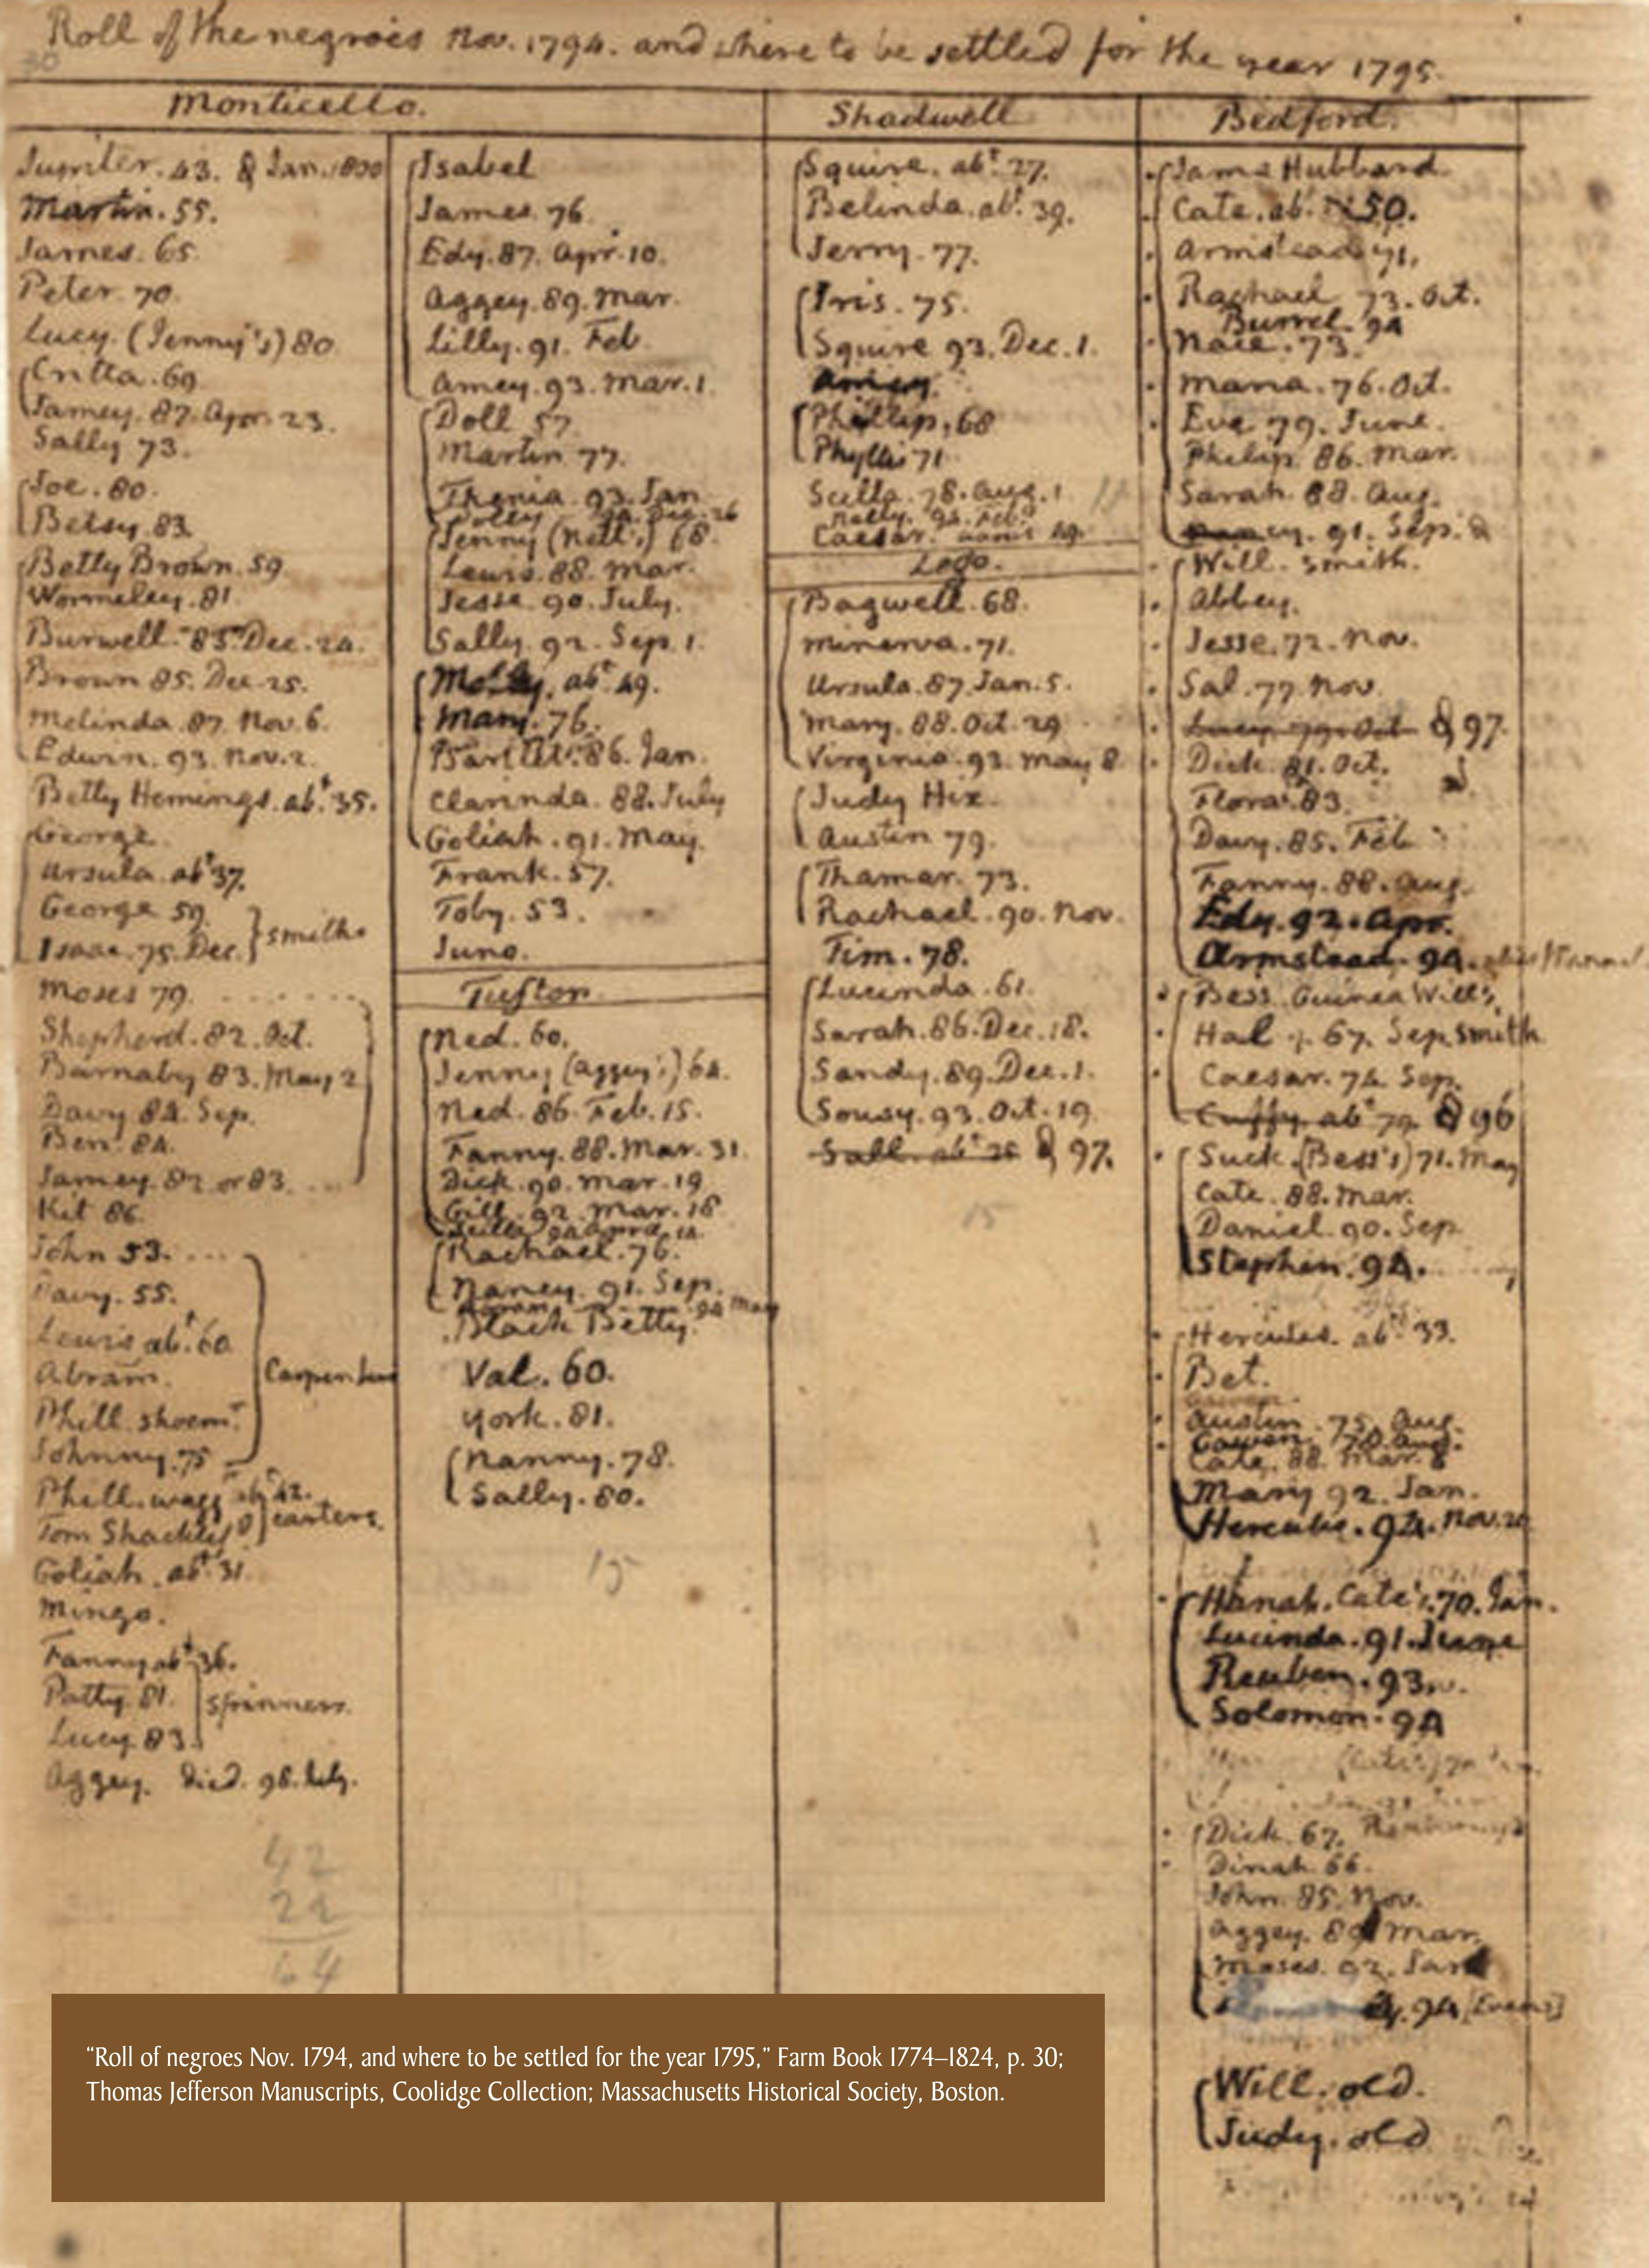 Roll of the negroes Nov. 1794. and where to be settled for the year 1795.
30
Monticello.
Jupiter. 43. Jan. 1800
Martin. 55.
James. 65.
Peter 70.
Lucy. (Jenny's) 80
Critta. 69
Jamey. 87. Apr. 23.
Sally 73.
Joe. 80.
Betsy. 83
Betty Brown. 59.
Wormeley. 81.
Burwell. 83. Dec. 24.
Brown 85. Dec. 25.
Melinda. 87. Nov. 6.
Edwin. 93. Nov. 2.
Betty Hemings. abt. 35.
George.
Ursula abt 37.
George 59.
smiths
Isaac. 75. Dec.
Moses 79.
Shepherd. 82. Oct.
Barnaby 83. May 2
Davy 84. Sep.
Ben. 84.
Jamey. 82 or 83.
Kit 86.
John 53.
Davy. 55.
Lewis abt. 60
Abram.
Carpenters
Phill. shoemr.
Johnny. 75
Phill. wagg abt 42.
Tom Shacklef
carters.
Goliah. abt. 31.
Mingo.
Fanny abt 36.
Patty. 81.
spinners.
Lucy. 83.
Aggey. died. 98. July.
42
22
64
Isabel
James. 76.
Edy. 87. Apr. 10.
Aggey. 89. Mar.
Lilly. 91. Feb.
Amey. 93. Mar. 1.
Doll 57.
Martin 77.
Thenia. 93. Jan
Dolly 94. Dec. 26
Jenny (Ned's) 68.
Lewis. 88. Mar.
Jesse. 90. July.
Sally. 92. Sep. 1.
Molly. abt. 49.
Mary. 76.
Bartlet. 86. Jan.
Clarinda. 88. July
Goliah. 91. May.
Frank. 57.
Toby. 53.
Juno.
Tufton.
Ned. 60.
Jenny (Aggey's) 64.
Ned. 86. Feb. 15.
Fanny. 88. Mar. 31.
Dick. 90. Mar. 19
Gill. 92. Mar. 18
Scilla. 94. April. 14.
Rachael. 76.
Nancy. 91. Sep.
Abram 94 May
Black Betty.
Val. 60.
York. 81.
Nanny. 78.
Sally. 80.
15
Shadwell
Squire. abt. 27.
Belinda. abt. 39.
Jerry. 77.
Iris. 75.
Squire 93. Dec. 1.
Amey.
Phillip. 68
Phyllis 71.
Scilla. 78. Aug. 1
Caesar. 49.
Lego.
Bagwell. 68.
Minerva. 71.
Ursula. 87. Jan. 5.
Mary. 88. Oct. 29
Virginia. 93. May 8.
Judy Hix.
Austin 79.
Thamar. 73.
Rachael. 90. Nov.
Tim. 78.
Lucinda. 61.
Sarah. 86. Dec. 18.
Sandy. 89. Dec. 1.
Sousy. 93. Oct. 19.
Sall. abt 25 97.
15
Bedford.
James Hubbard.
Cate. abt. 50.
Armstead 71.
Rachael 73. Oct.
Burrel. 94
Nace. 73.
Maria. 76. Oct.
Eve 79. June.
Philip. 86. Mar.
Sarah. 88. Aug.
Nancy. 91. Sep. 8
Will. smith.
Abbey.
Jesse. 72. Nov.
Sal. 77. Nov.
Lucy. 79. Oct 97.
Dick. 81. Oct.
Flora. 83.
Davy. 85. Feb
Fanny. 88. Aug.
Edy. 92. Apr.
Armstead. 94.
Bess. Guinea Will's
Hal 67. Sep. smith
Caesar. 74. Sep.
Cuffy. abt 79. 96
Suck. (Bess's) 71. May
Cate. 88. Mar.
Daniel. 90. Sep
Stephen. 94.
Hercules. abt. 33.
Bet.
Austin. 75. Aug.
Gawen. 78. Aug.
Cate. 88. Mar. 8
Mary 92. Jan.
Hercules. 94. Nov. 20
Hanah. Cate's. 70. Jan.
Lucinda. 91. June
Reuben. 93.
Solomon. 94
Dick. 67.
Dinah. 66.
John. 85. Nov.
Aggey. 89 Mar.
Moses. 92. Jan
94 [Evans]
Will. old.
Judy. old
“Roll of negroes Nov. 1794, and where to be settled for the year 1795,” Farm Book 1774–1824, p. 30;
Thomas Jefferson Manuscripts, Coolidge Collection; Massachusetts Historical Society, Boston.